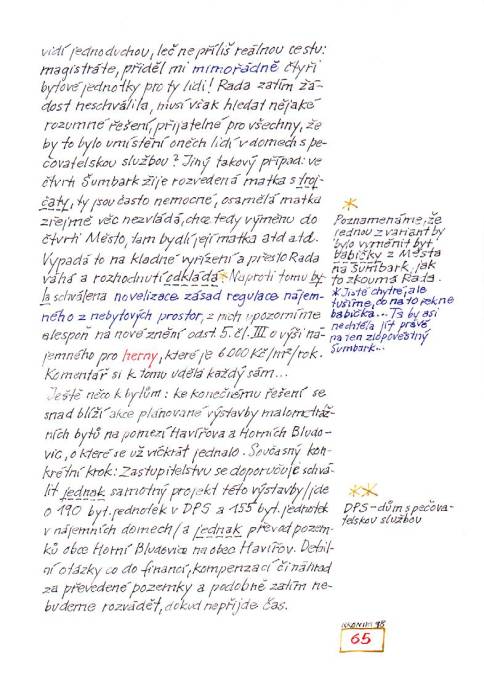 vidí jednoduchou, leč ne příliš reálnou cestu:
magistráte, přiděl mi mimořádně čtyři
bytové jednotky pro ty lidi! Rada zatím žá-
dost neschválila, musí však hledat nějaké
rozumné řešení, přijatelné pro všechny, že
by to bylo umístění oněch lidí v domech s pe-
čovatelskou službou? Jiný takový případ: ve
čtvrti Šumbark žije rozvedená matka s troj-
čaty, ty jsou často nemocné, osamělá matka
zřejmě věc nezvládá, chce tedy výměnu do
čtvrti Město, tam bydlí její matka atd. atd.
Vypadá to na kladné vyřízení a přesto Rada
váhá a rozhodnutí odkládá* Naproti tomu by-
la schválena novelizace zásad regulace nájem-
ného z nebytových prostor, z nich upozorníme
alespoň na nové znění odst. 5. čl. III o výši ná-
jemného pro herny, které je 6 000 Kč/m²/rok.
Komentář si k tomu udělá každý sám...
Ještě něco k bytům: ke konečnému řešení se
snad blíží akce plánované výstavby malometráž-
ních bytů na pomezí Havířova a Horních Bludo-
vic, o které se už víckrát jednalo. Současný kon-
krétní krok: Zastupitelstvu se doporučuje schvá-
lit jednak samotný projekt této výstavby/jde
o 190 byt. jednotek v DPS a 155 byt. jednotek
v nájemních domech/a jednak převod pozem-
ků obce Horní Bludovice na obec Havířov. Detail-
ní otázky co do financí, kompenzací či náhrad
za převedené pozemky a podobně zatím ne-
budeme rozvádět, dokud nepřijde čas.
*
Poznamenáme, že
jednou z variant by
bylo vyměnit byt
babičky z Města
na Šumbark, jak
to zkoumá Rada.
* Jistě chytré, ale
tušíme, co na to řekne
babička... Ta by asi
nechtěla jít právě
na ten zlopověstný
Šumbark...
**
DPS - dům s pečova-
telskou službou
KRONIKA 98
65